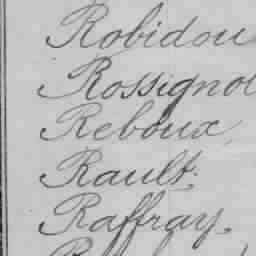 Robidou
Rossignol
Reboux,
Rault.
Raffray.